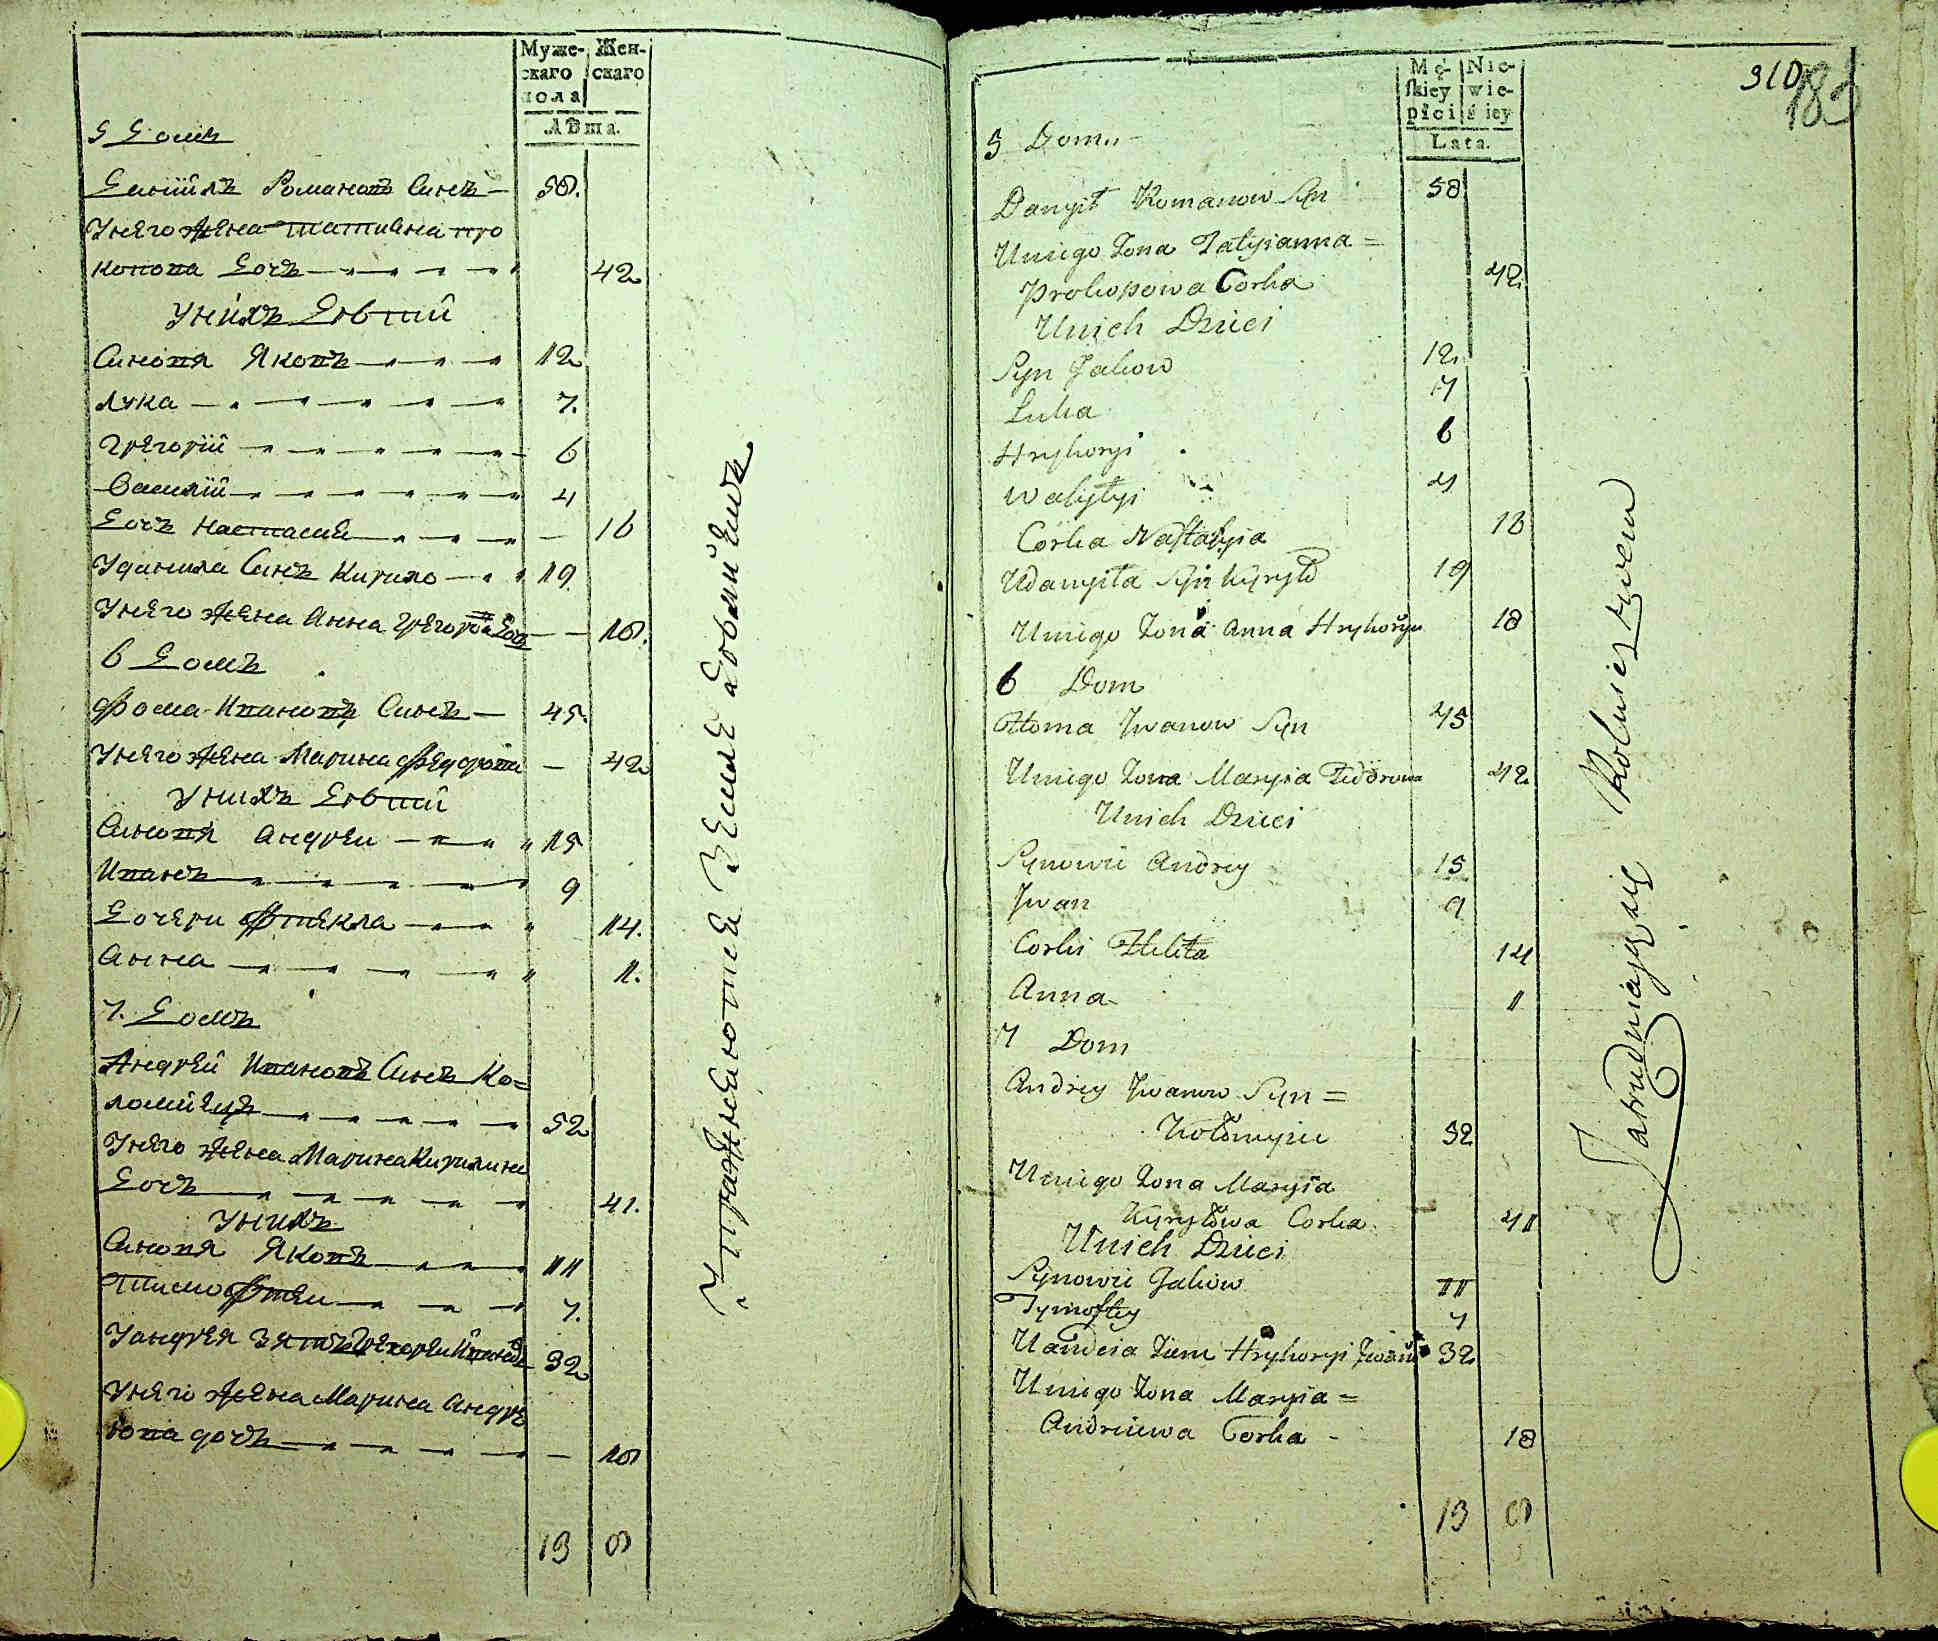 Муже-
скаго
пола
Жен-
скаго
Лѣта.
5 Домъ
Данїилъ Романовъ Синъ — 58.
Унего жена татияна про
копова дочь 42
Унихъ Дѣтий
Синовя Яковъ 12
лука 7.
григорїй 6
Василїй 4
дочь настасия — 16
Уданила Синъ Кирило 19
Унего жена Анна григорова дочь — 18.
6 Домъ
Фома Ивановъ Синъ — 45.
Унего жена Марина Федорова — 42
Унихъ Дѣтий
Синовя андреи 15
Иванъ 9
дочери Фтекла 14.
анна 11.
7. Домъ
Андрей Ивановъ Синъ Ко=
ломиецъ 52
Унего жена Марина Кирилина
дочъ 41.
Унихъ
Синовя Яковъ 11
тимофтеи 7.
Уандрея зять григореи Ивановъ 32
Унего жена Марина андре
ева дочъ — 18
13 8
Упражняются Земледѣлиемъ
310
183
Mę-
skiey
płci
Nie-
wie-
ściey
Lata.
5 Dom
Danyił Romanow Syn 58
Uniego Zona Tatyianna =
Prokopowa Corka 42
Unich Dzieci
Syn Jakow 12
Łuka 7
Hryhoryi 6
Wasyłyi 4
Corka Nastasyia 16
Udanyiła Syn Kyryło 19
Uniego Zona Anna Hryhoryu 18
6 Dom
Homa Jwanow Syn 45
Uniego Zona Maryia Fedorowa 42
Unich Dzieci
Synowie Andrey 15
Jwan 9
Corki Thekła 14
Anna 11
7 Dom
Andrey Jwanow Syn =
Kołomyiec 52
Uniego Zona Maryia
Kyryłowa Corka 41
Unich Dzieci
Synowie Jakow 11
Tymoftey 7
Uandeia Ziem Hryhoryi Jwanow 32
Uniego Zona Maryia =
Andreiewa Corka - 18
13 8
Zatrudniaią się Rolnieztwem